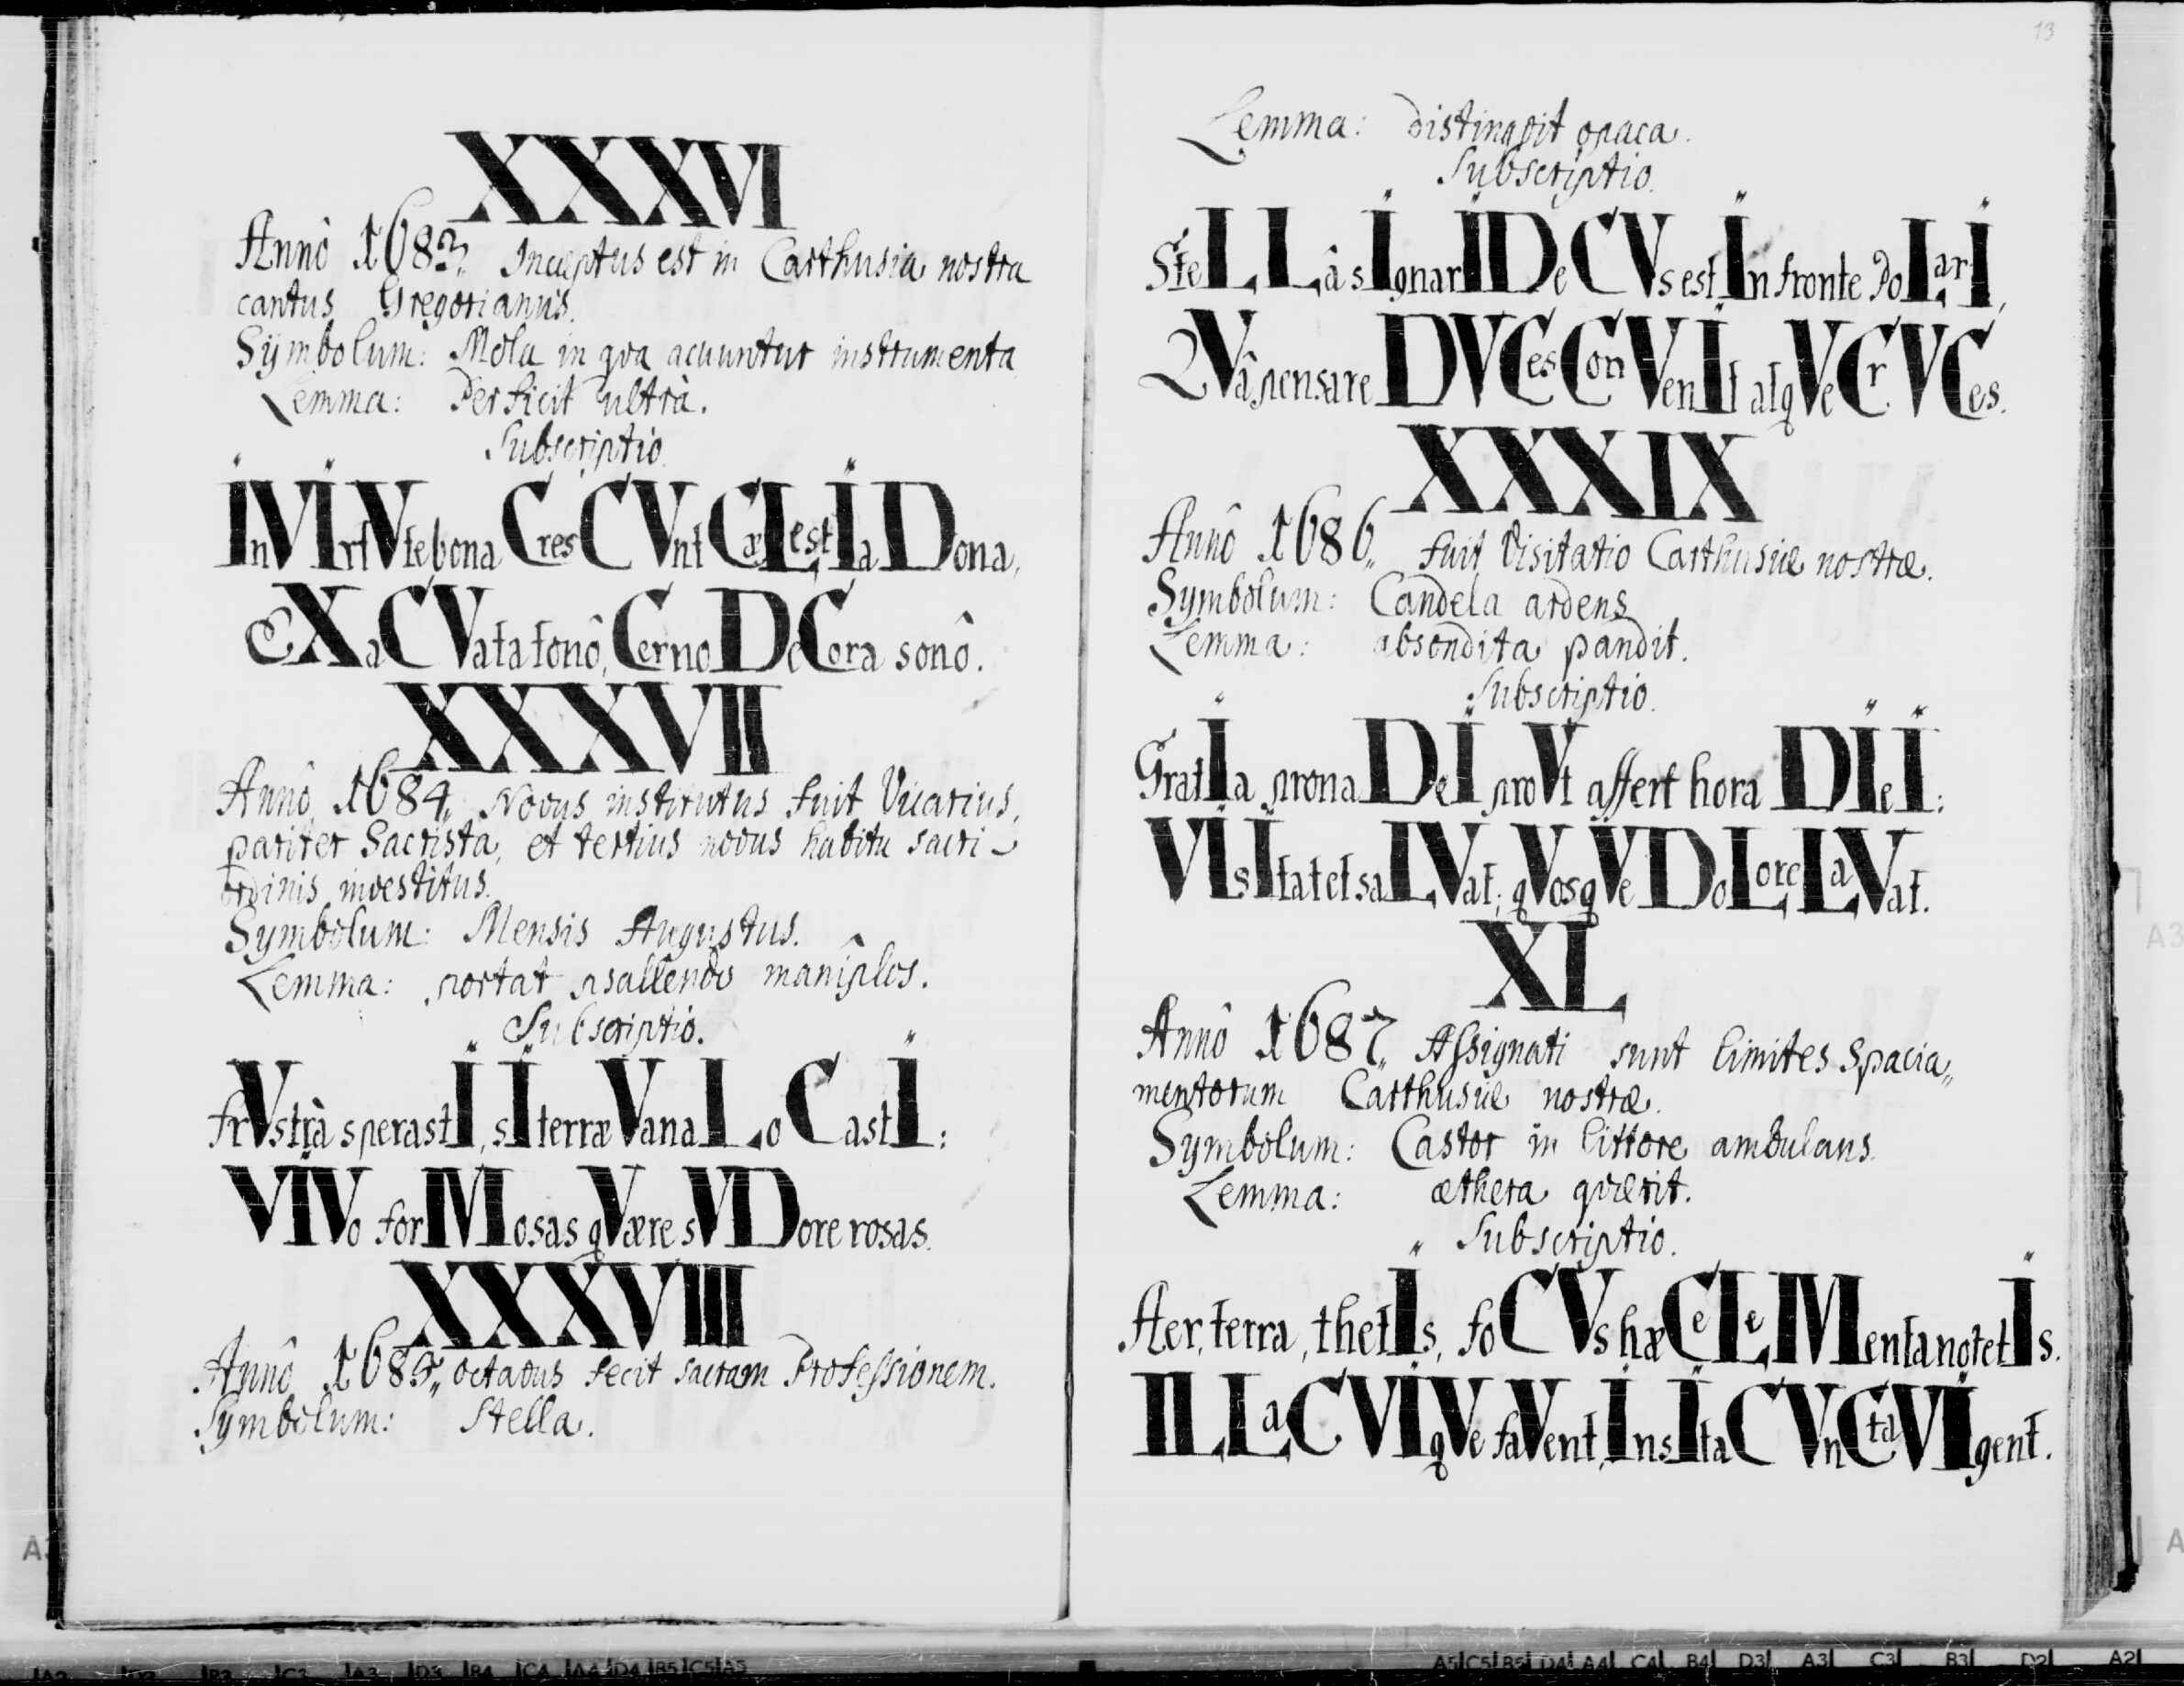 XXXVI
Annô 1683„ Inceptus est in Carthusia nostra
cantus Gregorianus.
Sÿmbolum: Mola in qva acuuntur instrumenta
Lemma: Perficit ultrà.
Subscriptio.
InVIrtVte bona CresCVnt CæLestIa Dona,
EXaCVata tonô, Cerno DeCora sonô.
XXXVII
Annô 1684„ Novus institutus fuit Vicarius,
pariter Sacrista, et tertius novus habitu sacri-
ordinis investitus.
Symbolum: Mensis Augustus.
Lemma: portat psallendo manîplos.
Subscriptio.
frVstrà sperastI, sI terræ Vana LoCastI:
VIVo forMosas qVære sVDore rosas.
XXXVIII
Annô 1685„ octavus fecit sacram Professionem.
Symbolum: Stella.
13
Lemma: distingvit opaca.
Subscriptio.
SteLLâ sIgnarI DeCVs est In fronte PoLarI,
QVâ pensare DVCes ConVenIt atqVe CrVCes.
XXXIX
Annô 1686„ fuit Visitatio Carthusiæ nostræ.
Symbolum: Candela ardens
Lemma: absondita pandit.
Subscriptio.
GratIa prona DeI proVt affert hora DIeI:
VIsItat et saLVat; qVosqVe DoLore LaVat.
XL
Annô 1687„ Assignati sunt limites Spacia„
mentorum Carthusiæ nostræ.
Symbolum: Castor in littore ambulans.
Lemma: æthera qværit.
Subscriptio.
Aer, terra, thetIs, foCVs hæC eLeMenta notetIs.
ILLa CVIqVe faVent, InsIta CVnCta VIgent.